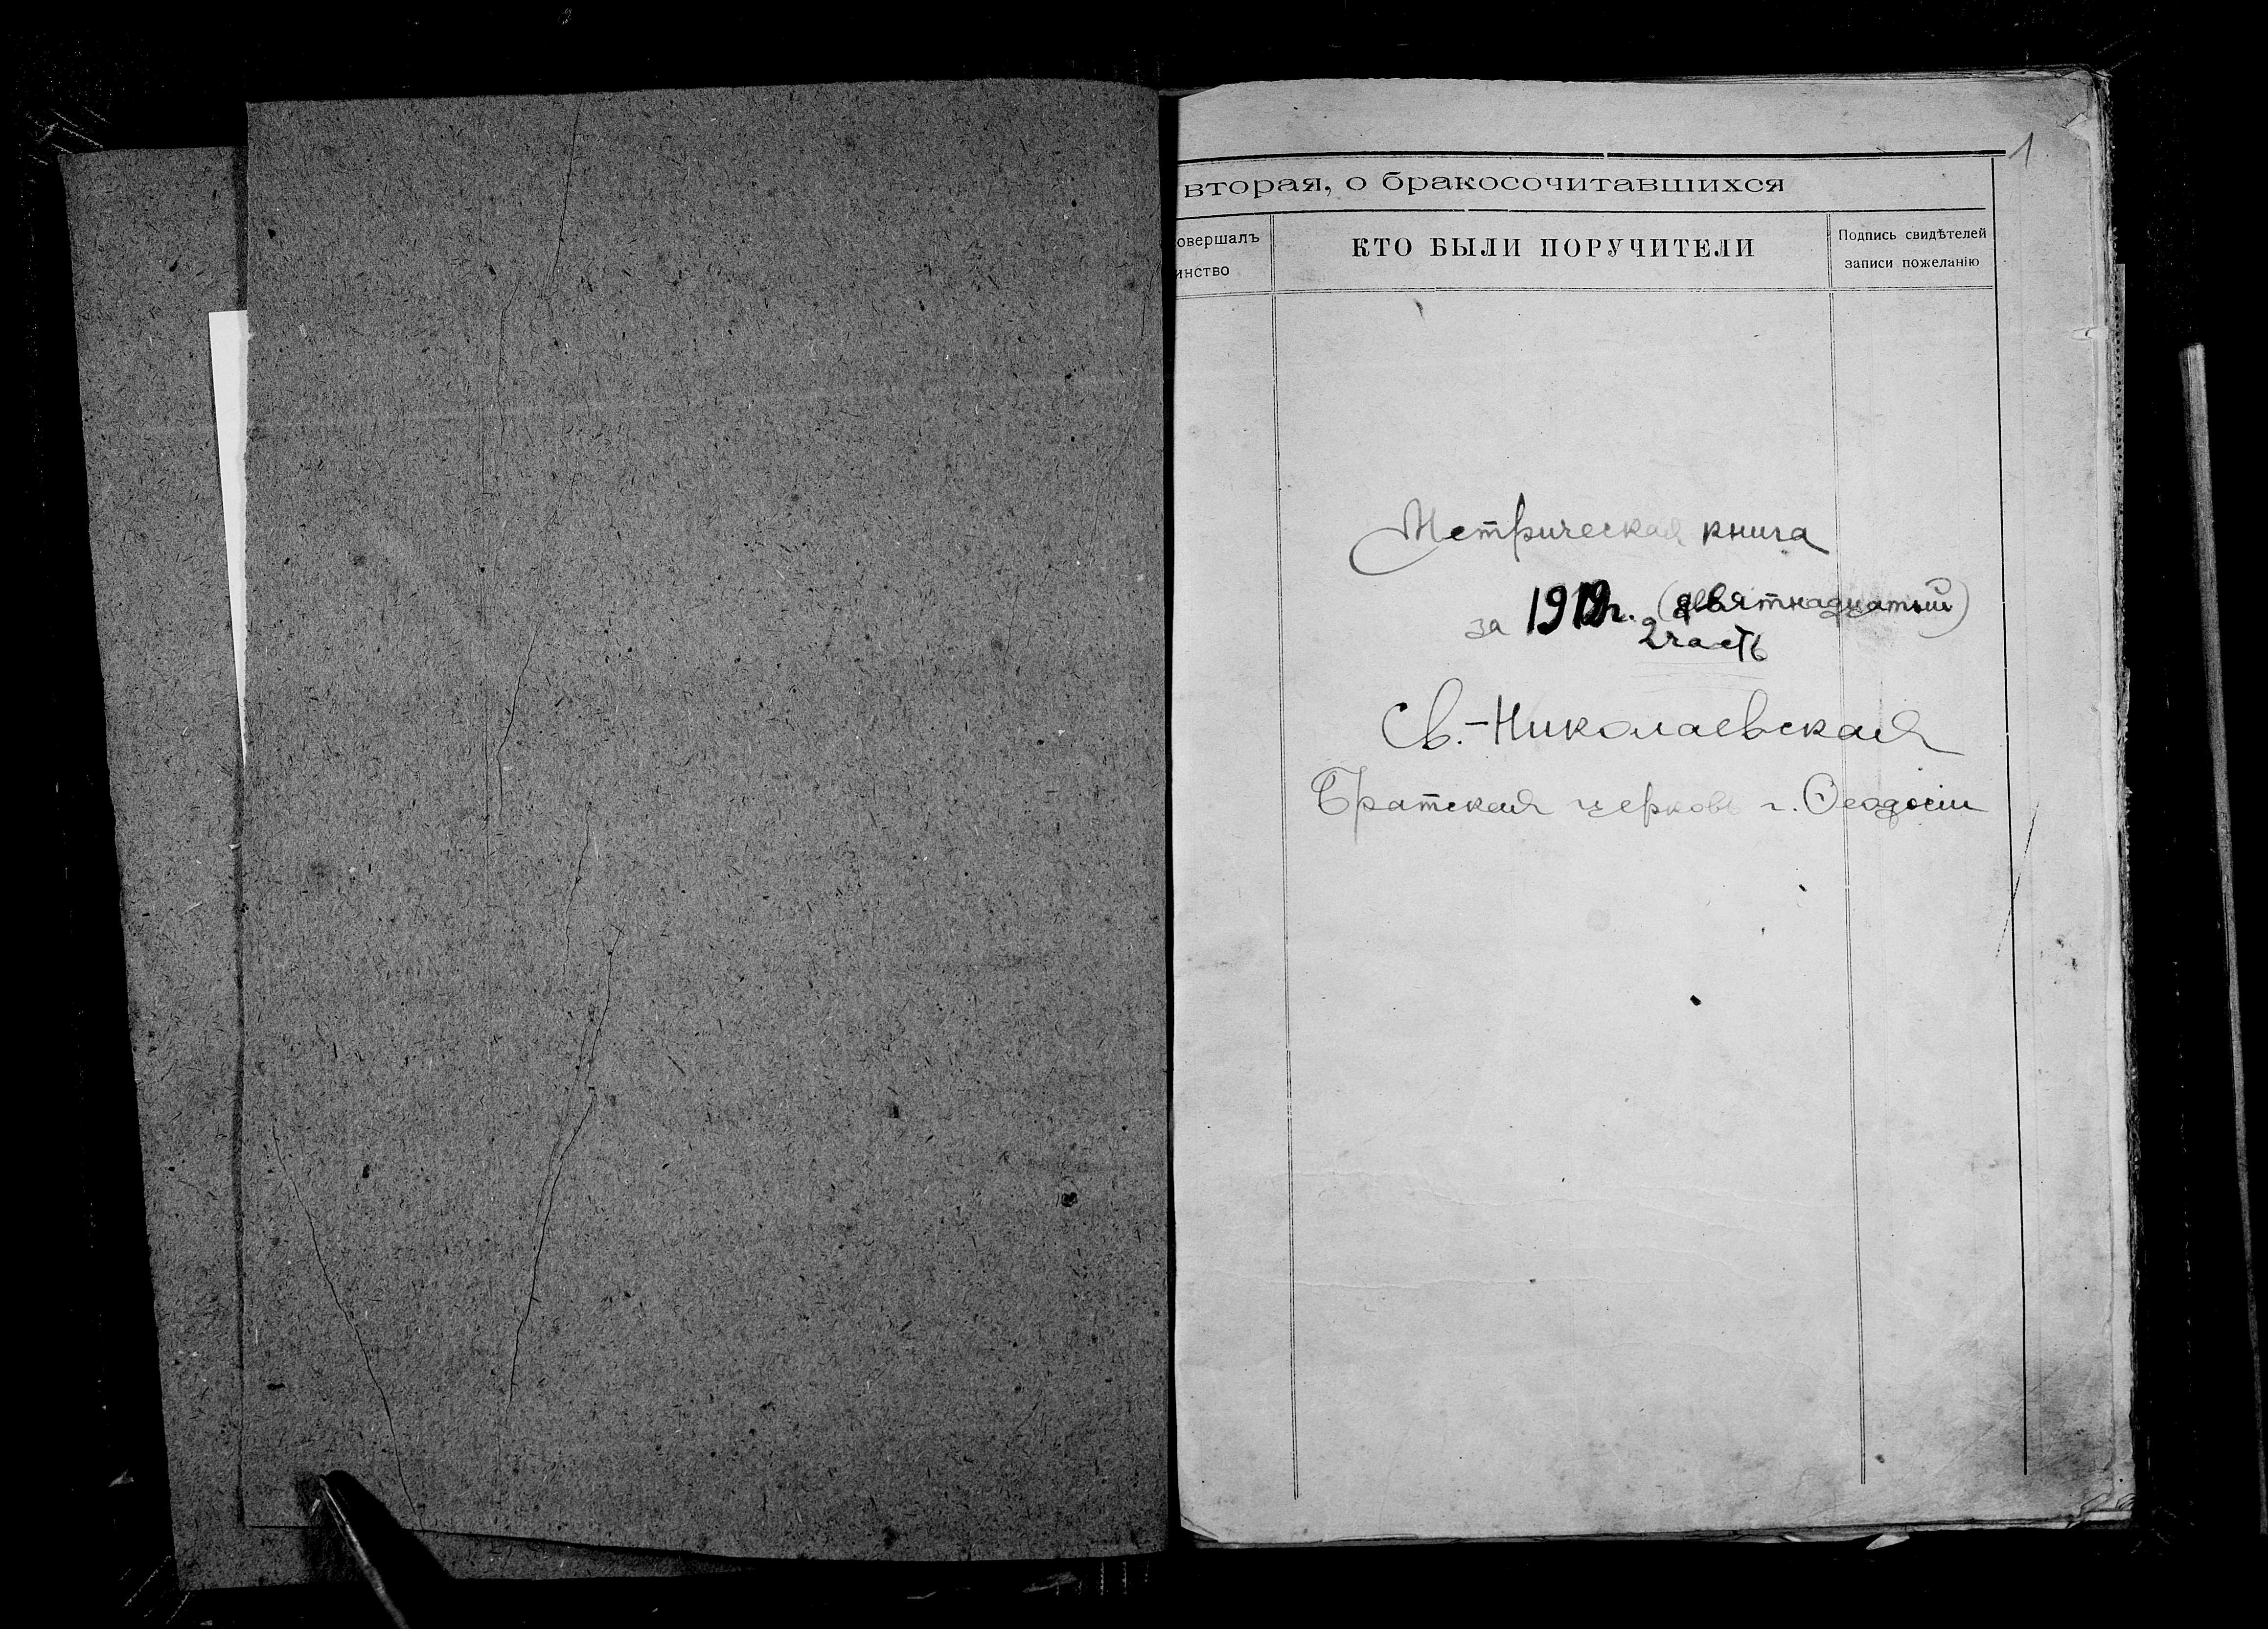 1
вторая, о бракосочитавшихся
овершалъ
инство
КТО БЫЛИ ПОРУЧИТЕЛИ
Подпись свидѣтелей
записи пожеланію
Метрическая книга
за 1919г. (девятнадцатый)
2 часть
Св.-Николаевская
Братская церковь г. Ѳеодосіи